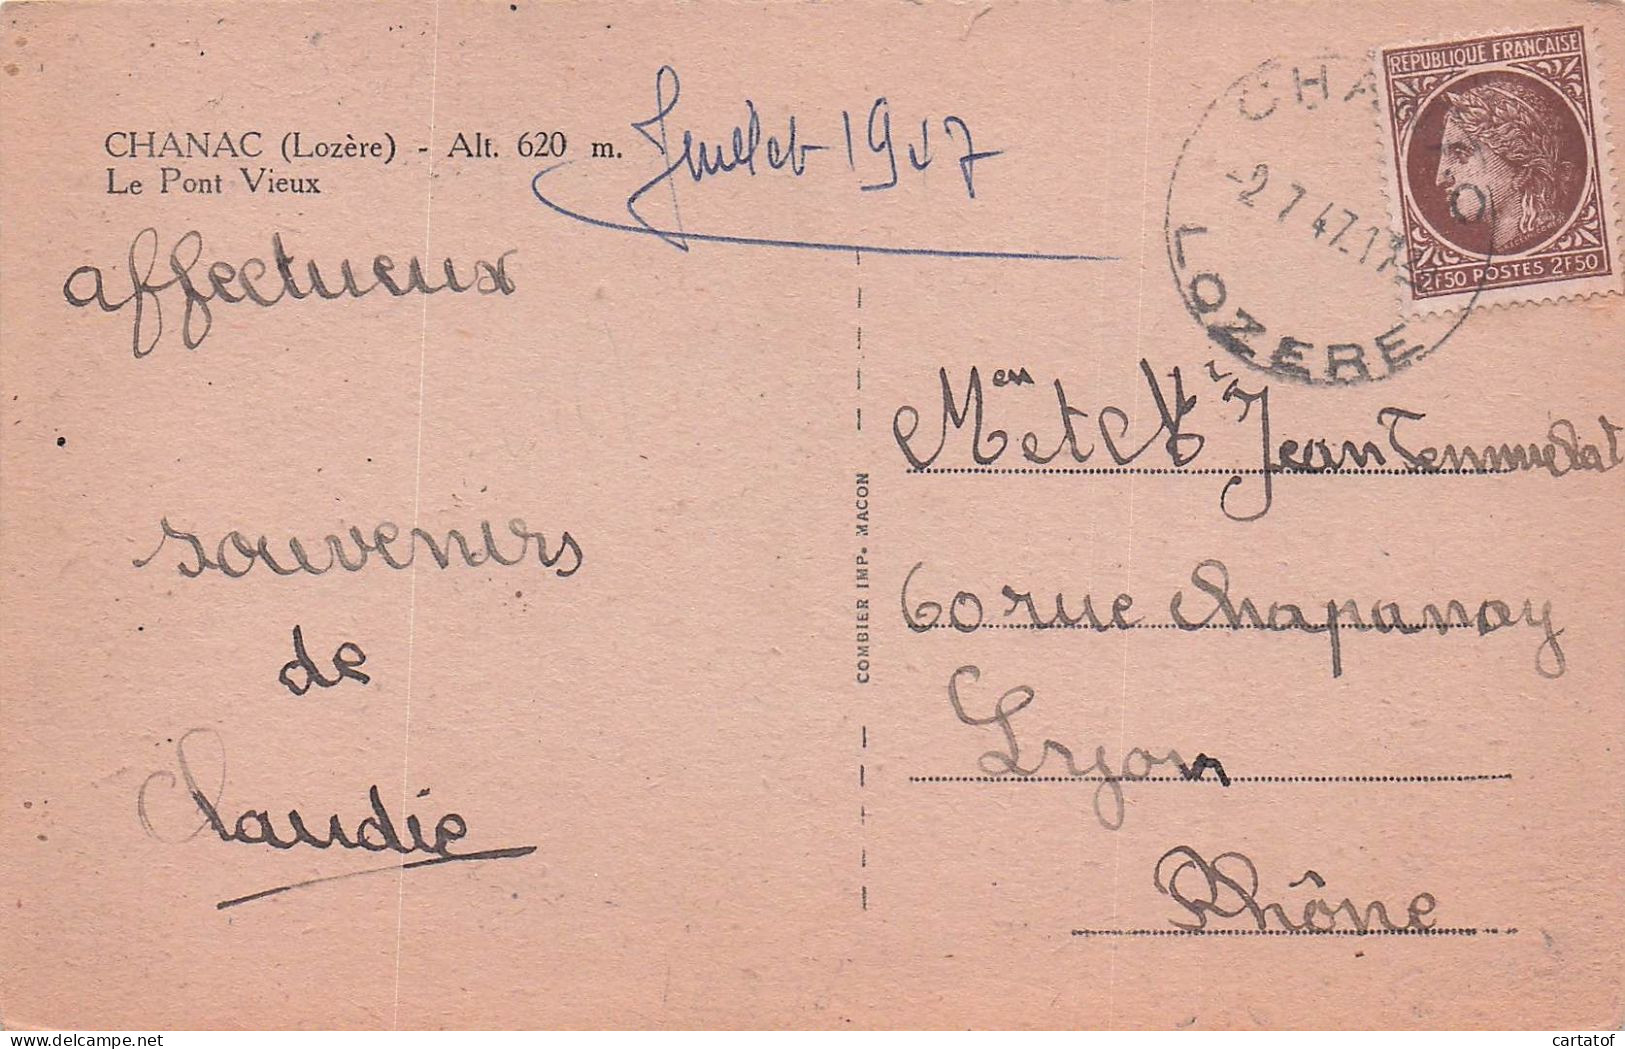 CHANAC (Lozère) - Alt. 620 m.
Le Pont Vieux
Juillet 1947
affectueux
souvenirs
de
Claudie
COMBIER IMP. MACON
REPUBLIQUE FRANÇAISE
2F50 POSTES 2F50
CHA
-2 7 47.17
LOZERE
Jean
60 rue Chapanay
Lyon
Rhône
cartatof